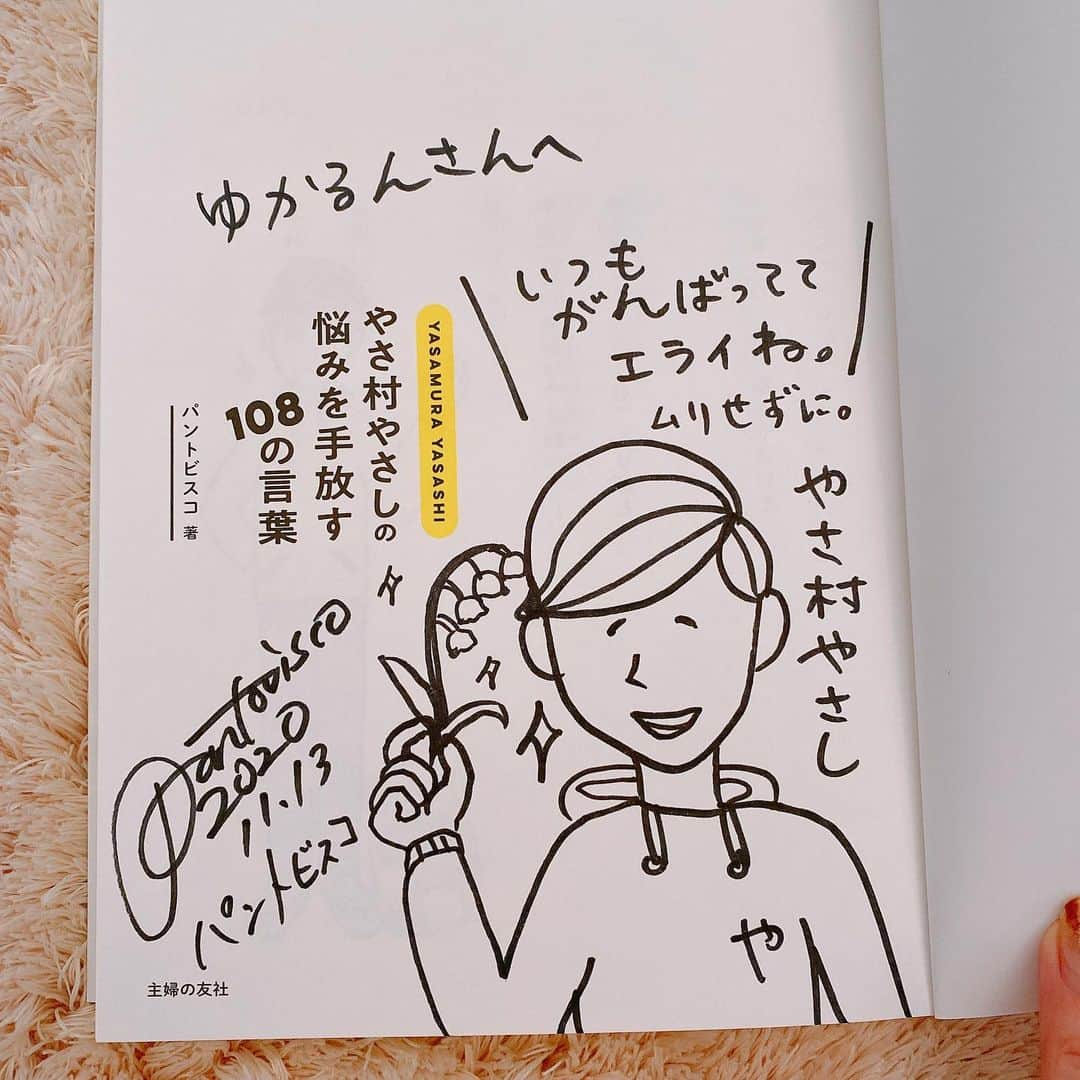 ゆかるんさんへ
いつも
がんばってて
エライね。
ムリせずに。
やさ村やさし
YASAMURA YASASHI
やさ村やさしの
悩みを手放す
108の言葉
パントビスコ 著
Pantovisco
2020
11.13
パントビスコ
や
主婦の友社